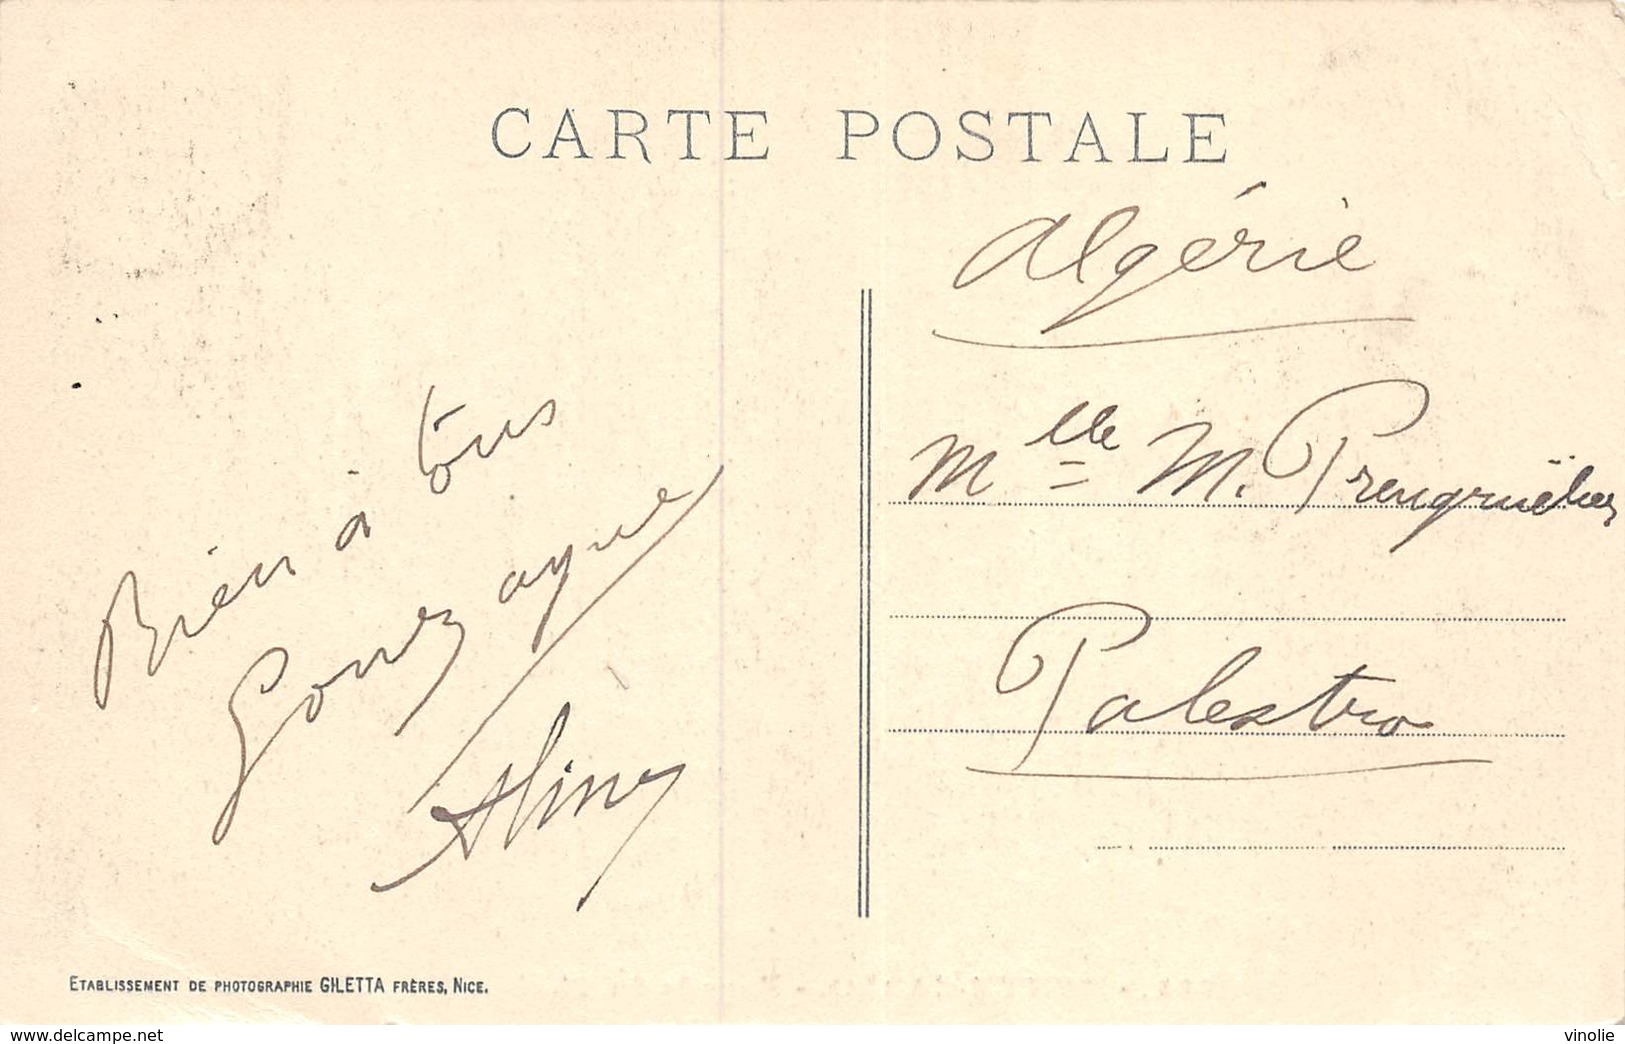 CARTE POSTALE
Algérie
Mlle M. Prengruëber
Palestro
Bien à tous
Gonzague
Aline
ETABLISSEMENT DE PHOTOGRAPHIE GILETTA FRÈRES, NICE.
https://www.delcampe.net
vinolie